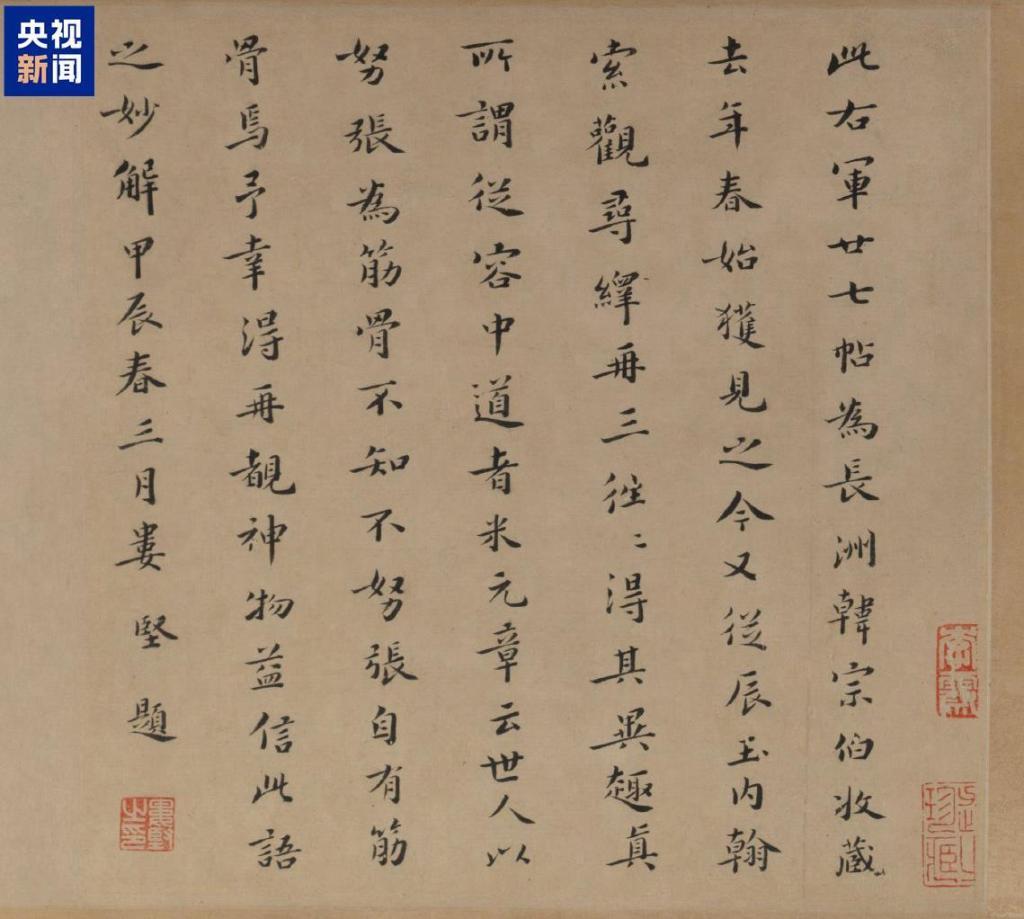 央视
新闻
此右軍廿七帖為長洲韓宗伯收藏
去年春始獲見之今又從辰玉内翰
索觀尋繹再三往〻得其異趣真
所謂從容中道者米元章云世人以
努張為筋骨不知不努張自有筋
骨焉予幸得再覩神物益信此語
之妙解甲辰春三月婁堅題
婁堅之印